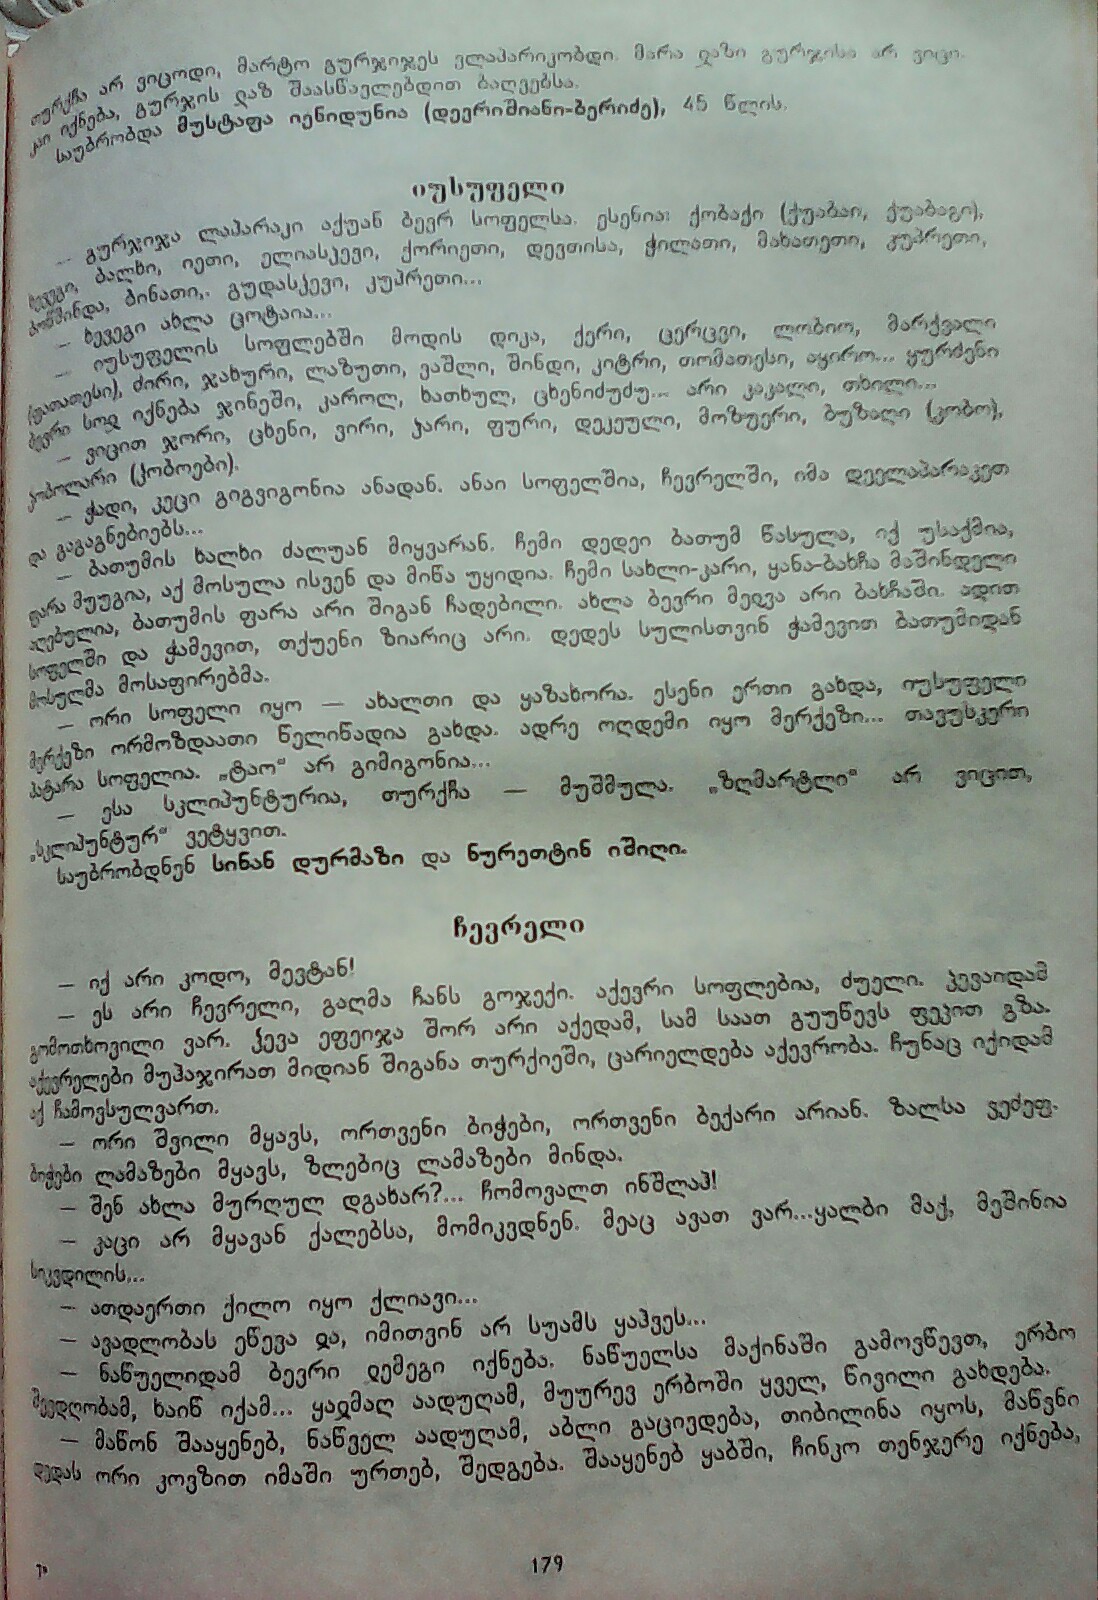 თურქჩა არ ვიცოდი, მარტო გურჯიჯეს ვლაპარიკობდი. მარა ჲაზი გურჯისა არ ვიცი.
კაი იქნება, გურჯის ჲაზ შაასწავლებდით ბაღვებსა.
საუბრობდა მუსტაფა იენიდუნია (დევრიშიანი-ბერიძე), 45 წლის.
იუსუფელი
– გურჯიჯა ლაპარაკი აქუან ბევრ სოფელსა. ესენია: ქობაქი (ქუაბაი, ქუაბაგი),
ხევეგი, ბალხი, იეთი, ელიასკევი, ქორიეთი, დევთისა, ჭილათი, მახათეთი, კუპრეთი,
ბოშმინდა, ბინათი,. გუდასკევი, კუპრეთი...
– ხევეგი ახლა ცოტაია...
– იუსუფელის სოფლებში მოდის დიკა, ქერი, ცერცვი, ლობიო, მარქვალი
(ფათათესი), ძირი, ჯახური, ლაზუთი, ვაშლი, შინდი, კიტრი, თომათესი, აყირო... ყურძენი
ბევრი სოჲ იქნება ჯინეში, კაროლ, ხათხულ, ცხენიძუძუ... არი კაკალი, თხილი...
– ვიცით ჯორი, ცხენი, ვირი, ჴარი, ფური, დეკეული, მოზუერი, ბუზაღი (კობო),
კობოლარი (კობოები).
– ჭადი, კეცი გიგვიგონია ანადან. ანაი სოფელშია, ჩევრელში, იმა დეელაპარაკეთ
და გაგაგნებიებს...
– ბათუმის ხალხი ძალუან მიყვარან. ჩემი დედეი ბათუმ წასულა, იქ უსაქმია,
ფარა მუუგია, აქ მოსულა ისვენ და მიწა უყიდია. ჩემი სახლი-კარი, ყანა-ბახჩა მაშინდელი
აღებულია, ბათუმის ფარა არი შიგან ჩადებილი. ახლა ბევრი მეჲვა არი ბახჩაში. ადით
სოფელში და ჭამევით, თქუენი ზიარიც არი. დედეს სულისთვინ ჭამევით ბათუმიდან
მოსულმა მოსაფირებმა.
– ორი სოფელი იყო — ახალთი და ყაზახორა. ესენი ერთი გახდა, იუსუფელი
მერქეზი ორმოზდაათი წელიწადია გახდა. ადრე ოღდემი იყო მერქეზი... თავუსკერი
პატარა სოფელია. „ტაო“ არ გიმიგონია...
– ესა სკლიპუნტურია, თურქჩა – მუშმულა. „ზღმარტლი“ არ ვიცით,
„სკლიპუნტურ“ ვეტყვით.
საუბრობდნენ სინან დურმაზი და ნურეთტინ იშიღი.
ჩევრელი
– იქ არი კოდო, მევტან!
– ეს არი ჩევრელი, გაღმა ჩანს გოჯექი. აქევრი სოფლებია, ძუელი. ჴევაიდამ
გომოთხოვილი ვარ. ჴევა ეფეიჯა შორ არი აქედამ, სამ საათ გუუწევს ფეჴით გზა.
აქევრელები მუჰაჯირათ მიდიან შიგანა თურქიეში, ცარიელდება აქევრობა. ჩუნაც იქიდამ
აქ ჩამოვსულვართ.
– ორი შვილი მყავს, ორთვენი ბიჭები, ორთვენი ბექარი არიან. ზალსა ვეძეფ.
ბიჭები ლამაზები მყავს, ზლებიც ლამაზები მინდა.
– შენ ახლა მურღულ დგახარ?... ჩომოვალთ ინშლაჰ!
– კაცი არ მყავან ქალებსა, მომიკვდნენ. მეაც ავათ ვარ...ყალბი მაქ, მეშინია
სიკვდილის...
– ათდაერთი ქილო იყო ქლიავი...
– ავადლობას ეწევა ჲა, იმითვინ არ სუამს ყაჰვეს...
– ნაწუელიდამ ბევრი ჲემეგი იქნება. ნაწუელსა მაქინაში გამოვწევთ, ერბო
შევდღობამ, ხაიწ იქამ... ყაჲმაღ აადუღამ, მუურევ ერბოში ყველ, წივილი გახდება.
– მაწონ შააყენებ, ნაწველ აადუღამ, აბლი გაცივდება, თიბილინა იყოს, მაწვნი
დედას ორი კოვზით იმაში ურთებ, შედგება. შააყენებ ყაბში, ჩინკო თენჯერე იქნება,
179